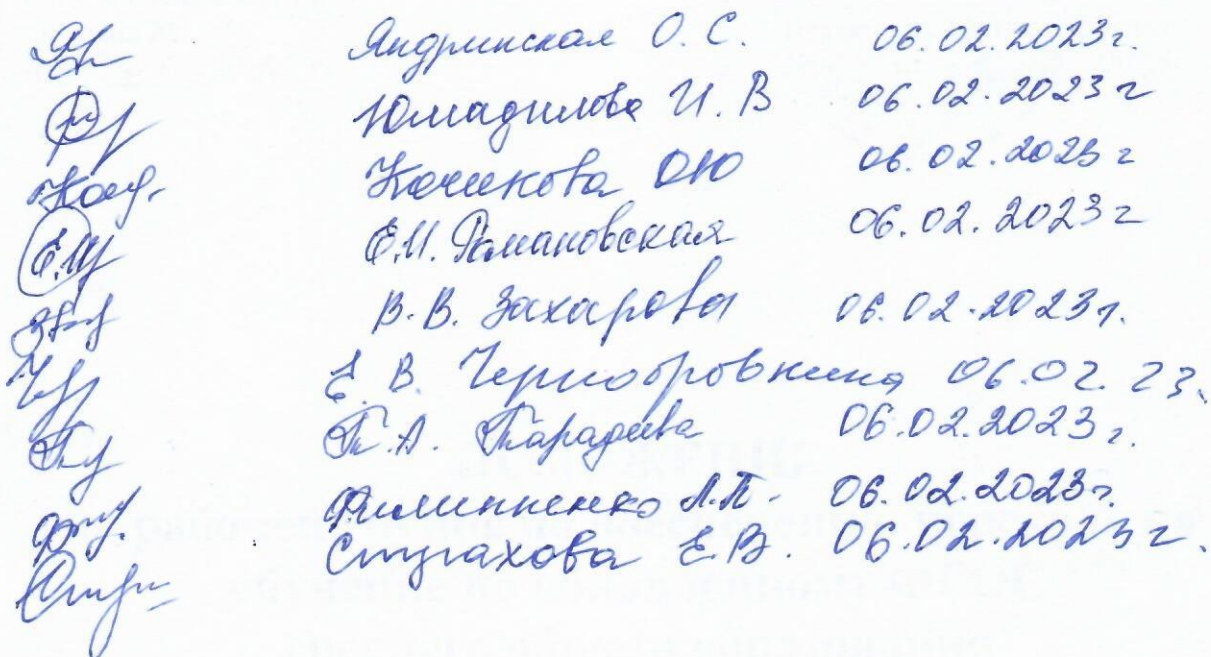 Яндринская О. С. 06.02.2023г.
Юмадилова И. В 06.02.2023 г
Кочикова ОЮ 06.02.2023 г
Е.И. Романовская 06.02.2023 г
В.В. Захарова 06.02.2023г.
Е. В. Чернобровкина 06.02.23.
Т.А. Парадеева 06.02.2023г.
Филипненко Л.П. 06.02.2023г.
Страхова Е.В. 06.02.2023 г.